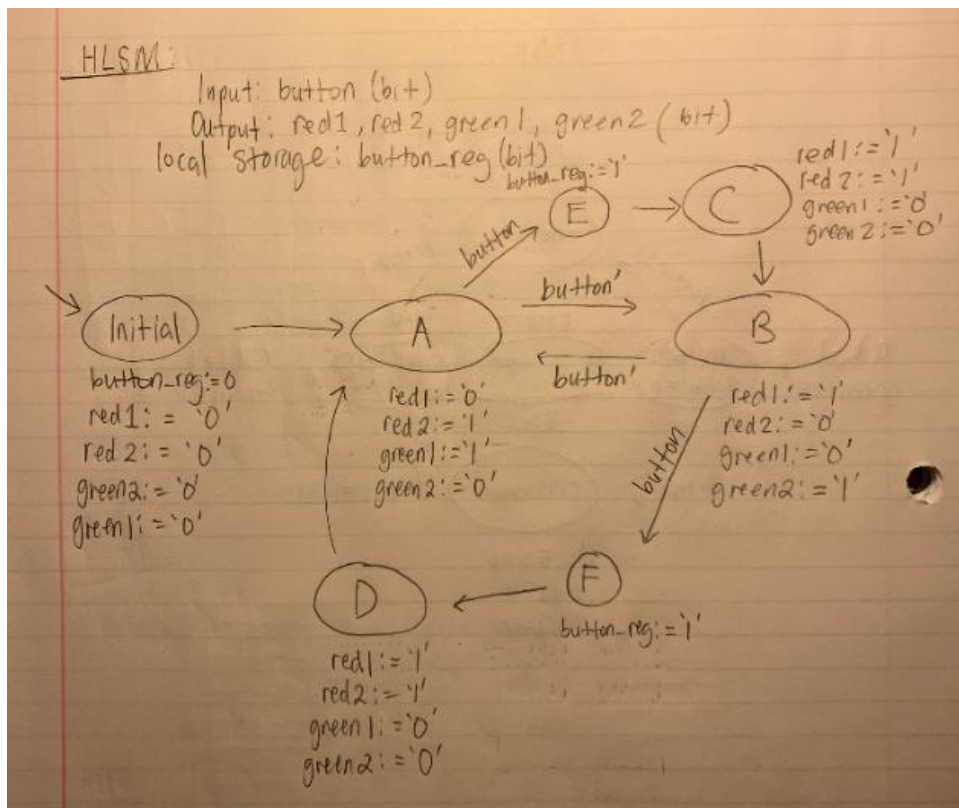 HLSM:
Input: button (bit)
Output: red1, red2, green1, green2 (bit)
local storage: button_reg (bit)
button_reg:='1'
E
C
red1:='1'
red2:='1'
green1:='0'
green2:='0'
button
button'
Initial
A
B
button'
button_reg:=0
red1:='0'
red2:='0'
green2:='0'
green1:='0'
red1:='0'
red2:='1'
green1:='1'
green2:='0'
red1:='1'
red2:='0'
green1:='0'
green2:='1'
button
D
F
button_reg:='1'
red1:='1'
red2:='1'
green1:='0'
green2:='0'